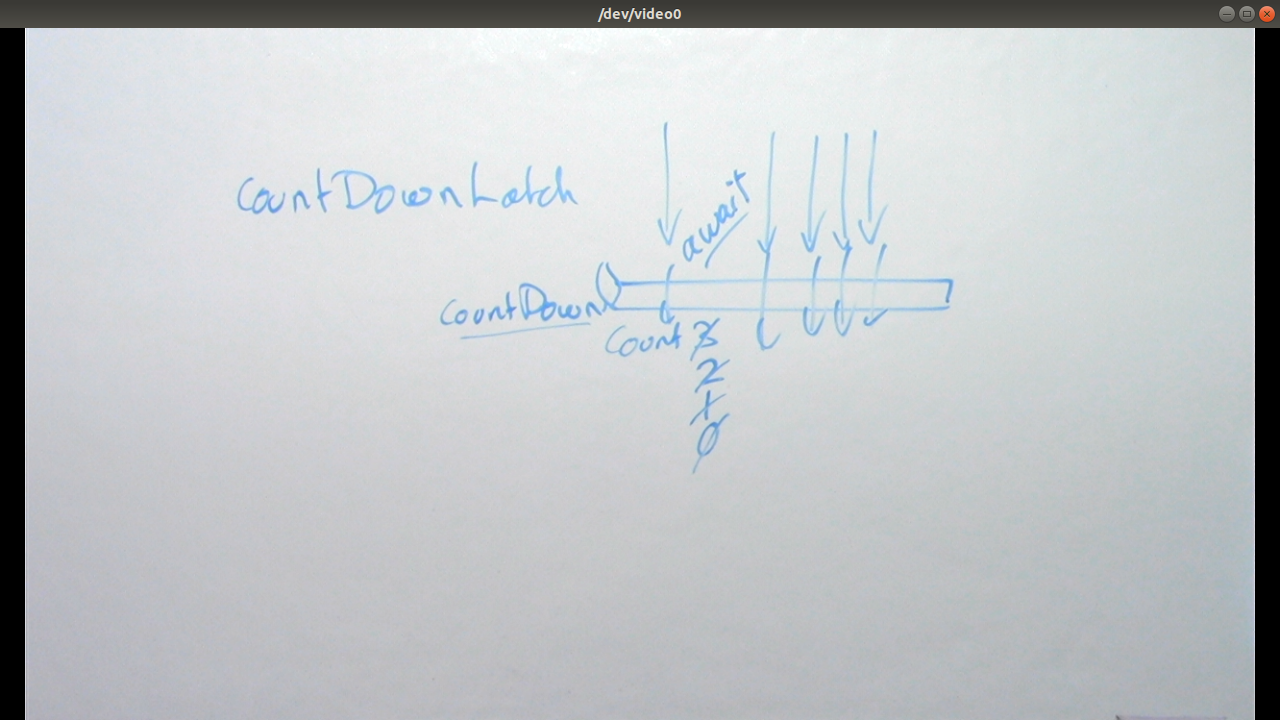 /dev/video0
CountDownLatch
await
countDown
Count 3
2
1
0